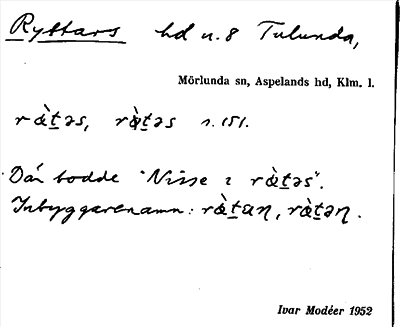 Ryttars hd u. 8 Tulunda,
Mörlunda sn, Aspelands hd, Klm. l.
rὰt̠əs, rὰt̠əs s. 151.
Där bodde "Nisse i rὰt̠əs".
Inbyggarenamn: rὰt̠aη, rὰt̠əη.
Ivar Modéer 1952